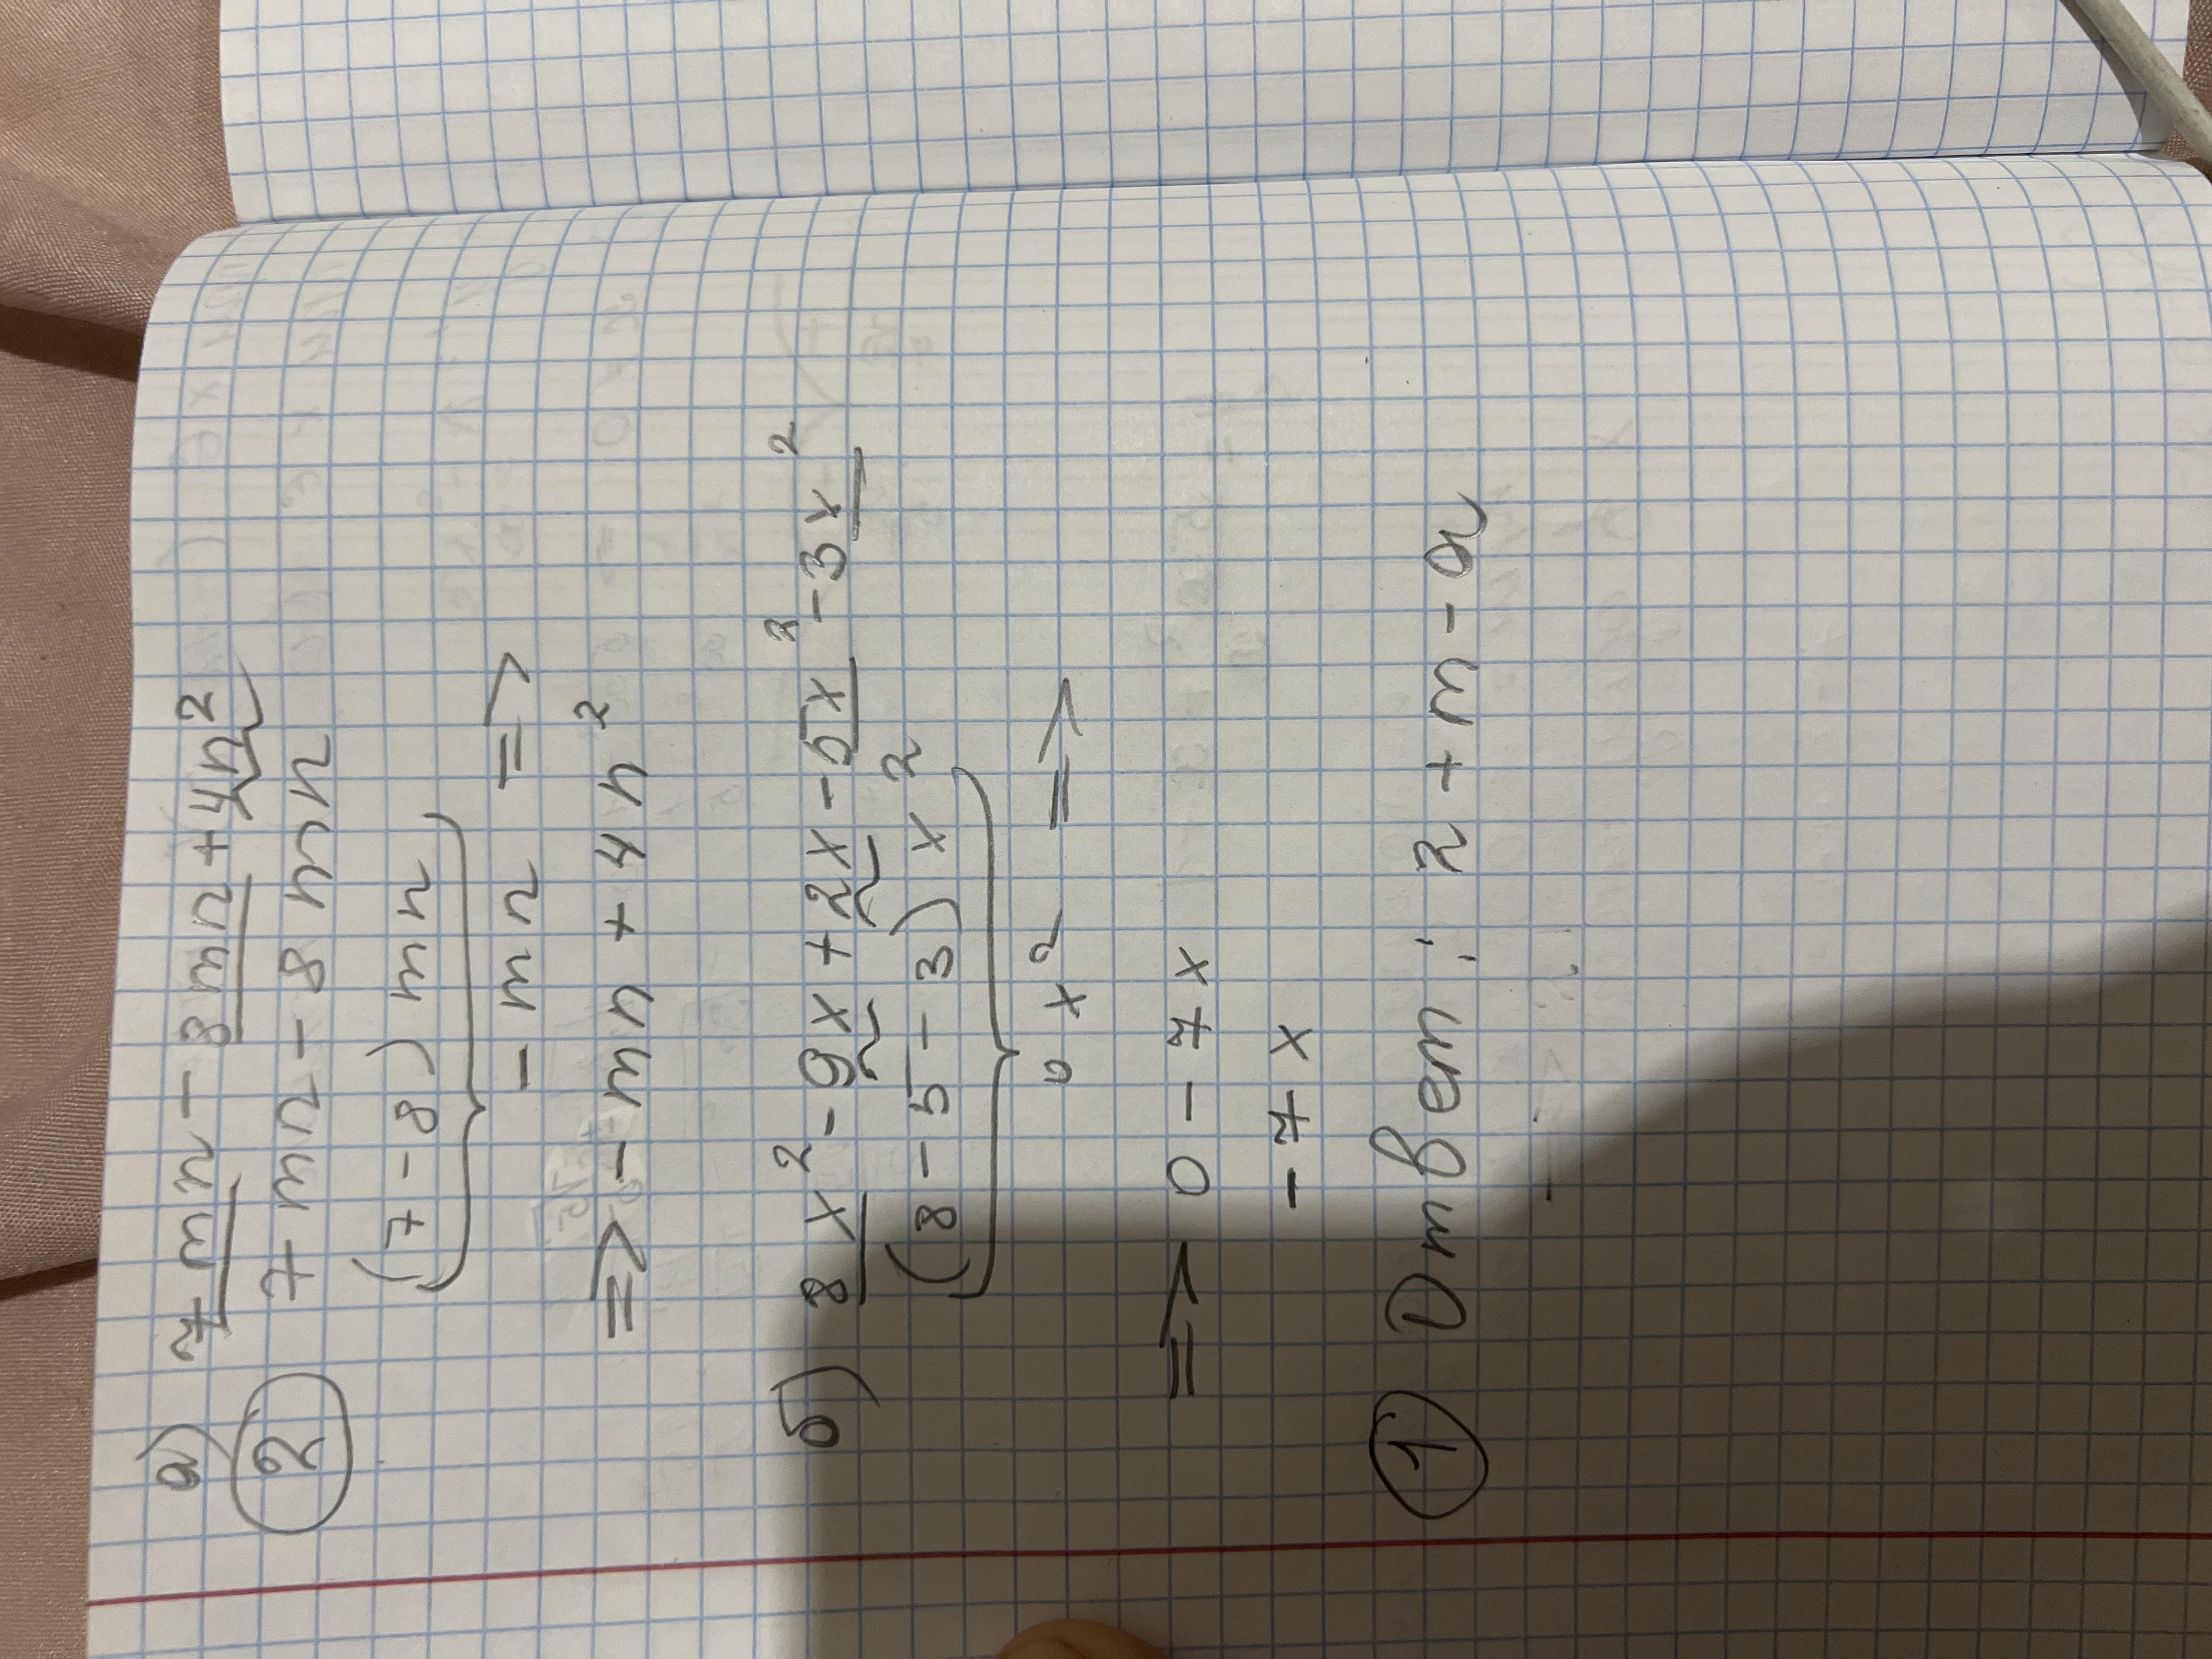 а) 7mn - 8mn + 4n²
② 7mn - 8mn
(7 - 8) mn
- mn =>
=> - mn + 4n²
б) 8x² - 9x + 2x - 5x² - 3x²
(8 - 5 - 3) x²
0 x² =>
=> 0 - 7x
- 7x
① Ответ: n + m - a